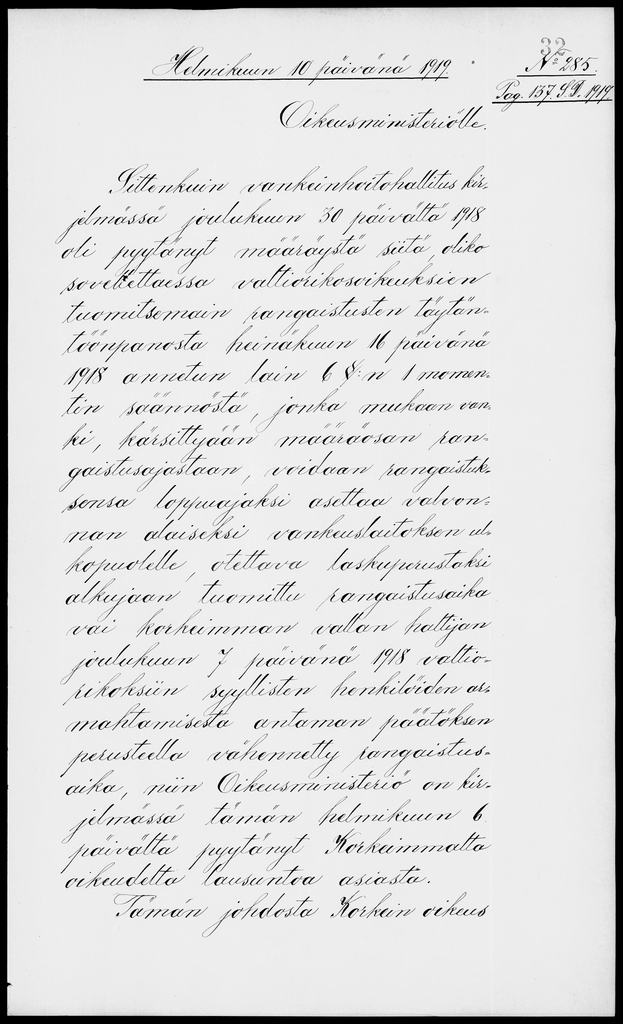 32
Helmikuun 10 päivänä 1919.
No 285.
Pag. 157. S.D. 1919.
Oikeusministeriölle.
Sittenkuin vankeinhoitohallitus kir-
jelmässä joulukuun 30 päivältä 1918
oli pyytänyt määräystä siitä, oliko
sovellettaessa valtiorikosoikeuksien
tuomitsemain rangaistusten täytän-
töönpanosta heinäkuun 16 päivänä
1918 annetun lain 6 §:n 1 momen-
tin säännöstä, jonka mukaan van-
ki, kärsittyään määräosan ran-
gaistusajastaan, voidaan rangaistuk-
sensa loppuajaksi asettaa valvon-
nan alaiseksi vankeuslaitoksen ul-
kopuolelle, otettava laskuperustaksi
alkujaan tuomittu rangaistusaika
vai korkeimman vallan haltijan
joulukuun 7 päivänä 1918 valtio-
rikoksiin syyllisten henkilöiden ar-
mahtamisesta antaman päätöksen
perusteella vähennetty rangaistus-
aika, niin Oikeusministeriö on kir-
jelmässä tämän helmikuun 6
päivältä pyytänyt Korkeimmalta
oikeudelta lausuntoa asiasta.
Tämän johdosta Korkein oikeus